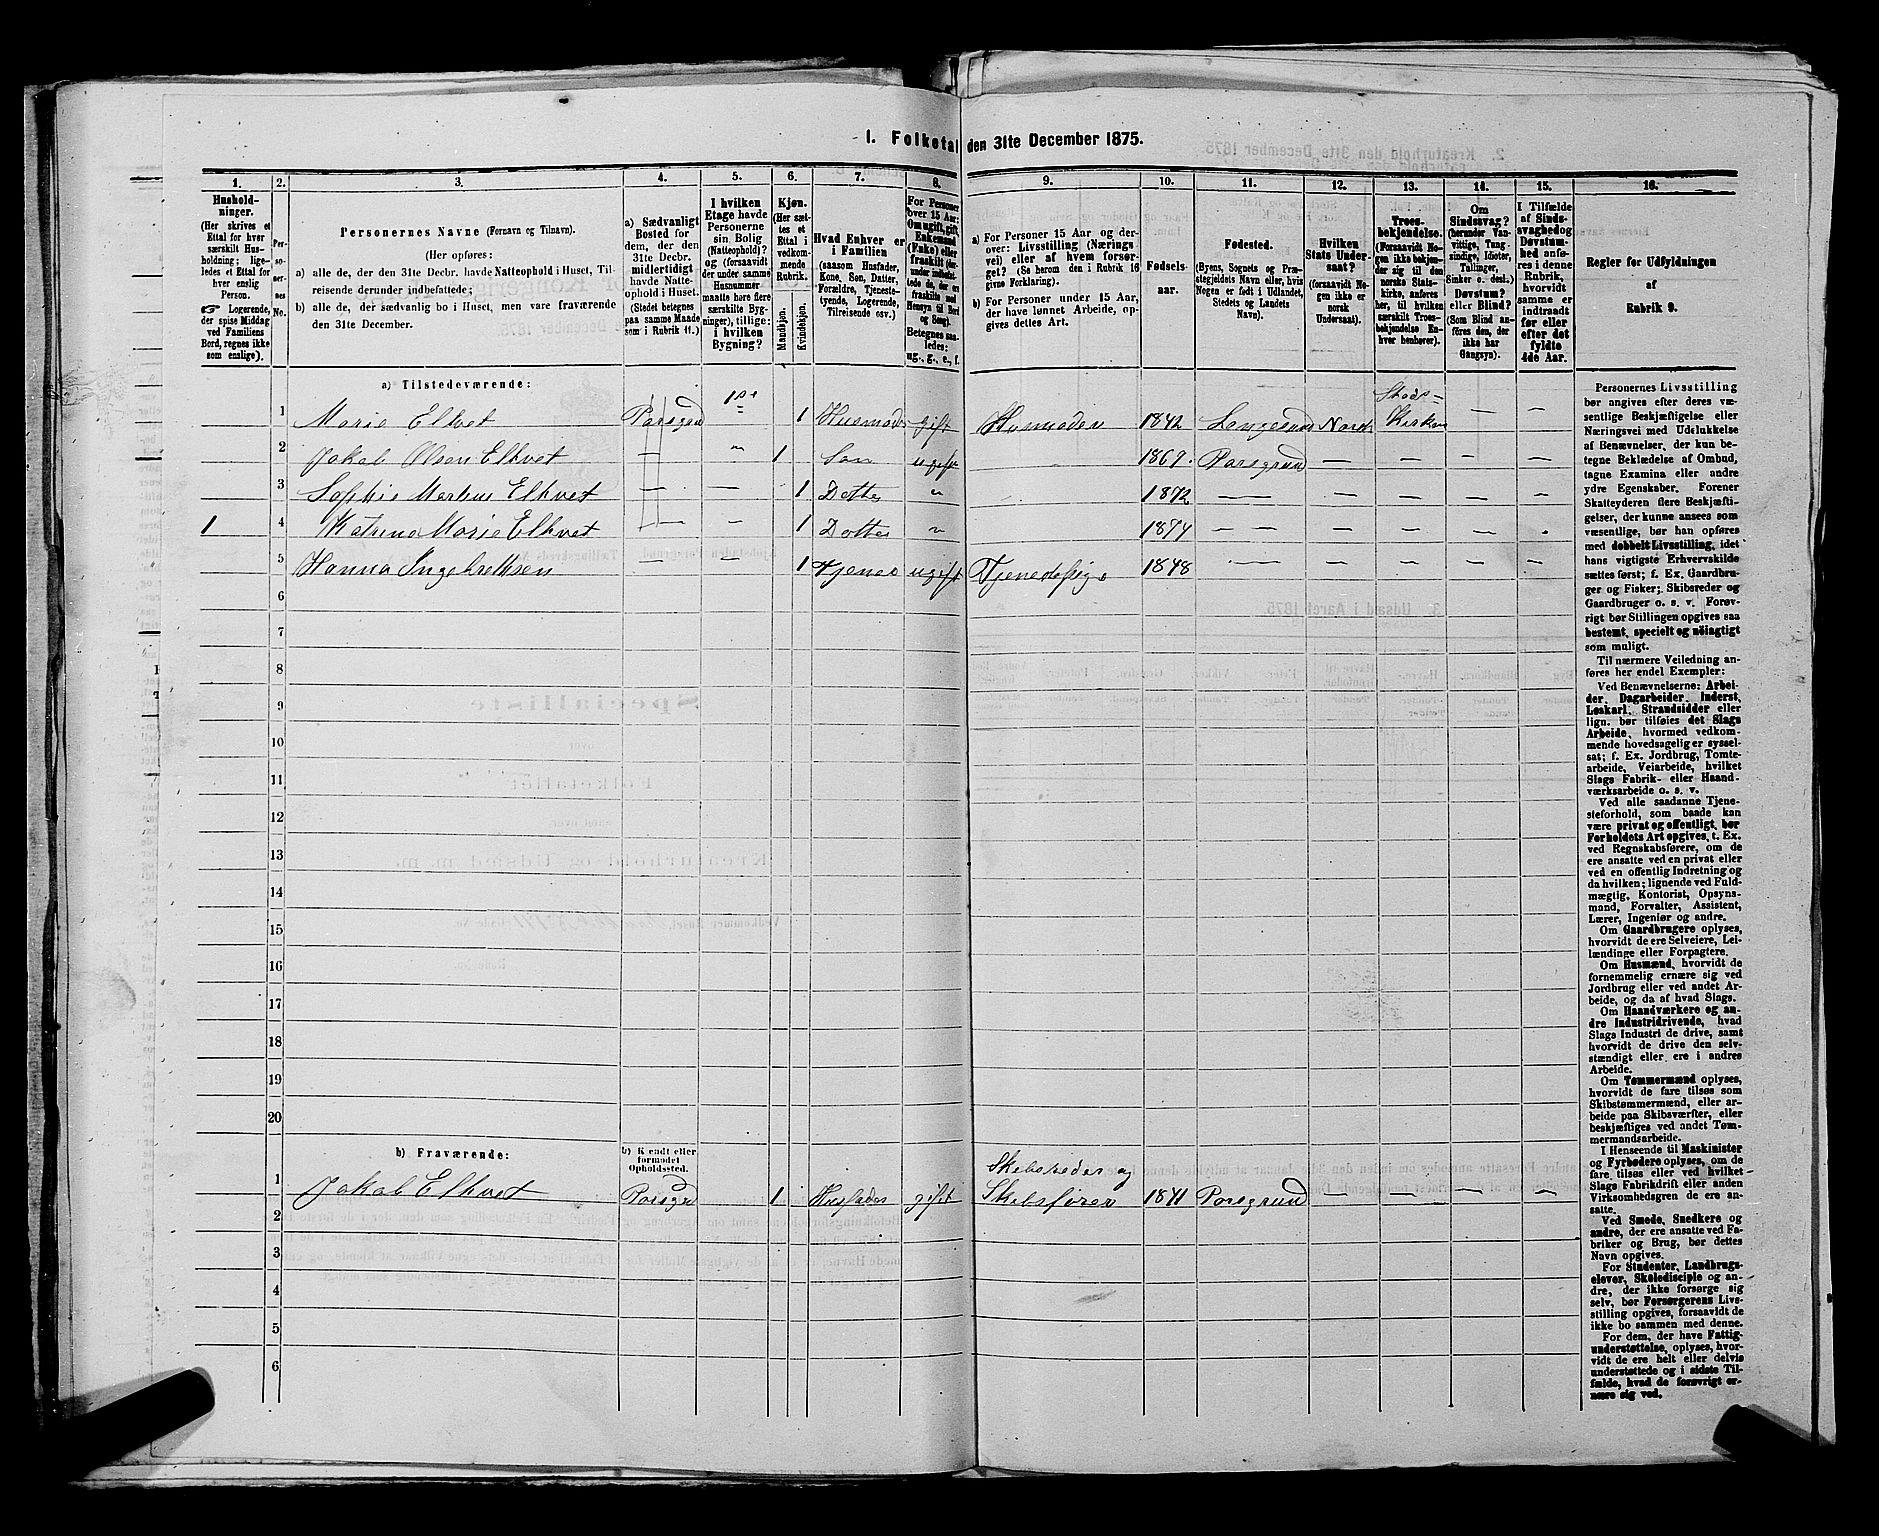 1. Folketal den 31te December 1875.
1. 2. 3. 4. 5. 6. 7. 8. 9. 10. 11. 12. 13. 14. 15. 16.
Hushold-
ninger.
(Her skrives et
Ettal for hver
særskilt Hus-
holdning; lige-
ledes et Ettal for
hver enslig
Person.
☞ Logerende,
der spise Middag
ved Familiens
Bord, regnes ikke
som enslige).
Per-
so-
ner-
nes
No.
Personernes Navne (Fornavn og Tilnavn).
(Her opføres:
a) alle de, der den 31te Decbr. havde Natteophold i Huset, Til-
reisende derunder indbefattede;
b) alle de, der sædvanlig bo i Huset, men vare fraværende
den 31te December.
a) Sædvanligt
Bosted for
dem, der den
31te Decbr.
midlertidigt
havde Natte-
ophold i Huset.
(Stedet betegnes
paa samme Maade
som i Rubrik 11.)
I hvilken
Etage havde
Personerne
sin Bolig
(Natteophold)?
og (forsaavidt
der under samme
Husnummer
maatte høre flere
særskilte Byg-
ninger), tillige:
i hvilken
Bygning?
Kjøn.
(Her sæt-
tes et
Ettal i
vedkom-
mende
Rubrik.
Mandkjøn.
Kvindekjøn.
Hvad Enhver er
i Familien
(saasom Husfader,
Kone, Søn, Datter,
Forældre, Tjeneste-
tyende, Logerende,
Tilreisende osv.)
For Personer
over 15 Aar:
Om ugift, gift,
Enkemand
(Enke) eller
fraskilt (der-
under indbefat-
tede de, der ere
fraskilte med
Hensyn til Bord
og Seng).
Betegnes saa-
ledes:
ug., g., e., f.
a) For Personer 15 Aar og der-
over: Livsstilling (Nærings-
vei) eller af hvem forsør-
get? (Se herom den i Rubrik 16
givne Forklaring).
b) For Personer under 15 Aar,
der have lønnet Arbeide, op-
gives dettes Art.
Fødsels-
aar.
Fødested.
(Byens, Sognets og Præ-
stegjeldets Navn eller, hvis
Nogen er født i Udlandet,
Stedets og Landets
Navn).
Hvilken
Stats Under-
saat?
(forsaavidt No-
gen ikke er
norsk
Undersaat).
Troes-
bekjendelse.
(Forsaavidt No-
gen ikke bekjen-
der sig til den
norske Stats-
kirke, anføres
her, til hvilken
særskilt Troes-
bekjendelse En-
hver henhører).
Om
Sindssvag?
(herunder Van-
vittige, Tung-
sindige, Idioter,
Tullinger,
Sinker o. desl.)
Døvstum?
eller Blind?
(Som Blind an-
føres den, der
ikke har
Gangsyn).
I Tilfælde
af Sinds-
svaghed og
Døvstum-
hed anfø-
res i denne
Rubrik,
hvorvidt
samme er
indtraadt
før eller
efter det
fyldte
4de Aar.
Regler for Udfyldningen
af
Rubrik 9.
a) Tilstedeværende: 1ste Stads=
1 Marie Elkvet Porsgrd " 1 Husmoder gift Husmoder 1842 Langesund Norsk Kirken — —
2 Jakob Olsen Elkvet — " 1 Søn ugift 1869. Porsgrund — — — —
3 Sophie Martine Elkvet — — 1 Dotter " 1872 — — — — —
1 4 Katrina Marie Elkvet — — 1 Dotter " 1874 — — — — —
5 Hanna Ingebretsen — — 1 Tjener ugift Tjenestepige 1848 — — — — —
6
7
8
9
10
11
12
13
14
15
16
17
18
19
20
b) Fraværende:
b) Kjendt eller
formodet
Opholdssted.
Skibsreder og
1 Jakob Elkvet Porsgrd 1 Husfader gift Skibsfører 1841 Porsgrund — — — —
2
3
4
5
6
Personernes Livsstilling
bør angives efter deres væ-
sentlige Beskjæftigelse eller
Næringsvei med Udelukkelse
af Benævnelser, der kun be-
tegne Beklædelse af Ombud,
tagne Examina eller andre
ydre Egenskaber. Forener
Skatteyderen flere Beskjæfti-
gelser, der kunne ansees som
væsentlige, bør han opføres
med dobbelt Livsstilling, idet
hans vigtigste Erhvervskilde
sættes først; f. Ex. Gaardbru-
ger og Fisker; Skibsreder og
Gaardbruger o. s. v. Forøv-
rigt bør Stillingen opgives saa
bestemt, specielt og nøiagtigt
som muligt.
Til nærmere Veiledning an-
føres her endel Exempler:
Ved Benævnelserne: Arbei-
der, Dagarbeider, Inderst,
Løskarl, Strandsidder eller
lign. bør tilføies det Slags
Arbeide, hvormed vedkom-
mende hovedsagelig er syssel-
sat; f. Ex. Jordbrug, Tomte-
arbeide, Veiarbeide, hvilket
Slags Fabrik- eller Haand-
værksarbeide o. s. v.
Ved alle saadanne Tjene-
steforhold, som baade kan
være privat og offentligt, bør
Forholdets Art opgives, t. Ex.
ved Regnskabsførere, om de
ere ansatte ved en privat eller
ved en offentlig Indretning og
da hvilken; lignende ved Fuld-
mægtig, Kontorist, Opsyns-
mand, Forvalter, Assistent,
Lærer, Ingeniør og andre.
Om Gaardbrugere oplyses,
hvorvidt de ere Selveiere, Lei-
lændinge eller Forpagtere.
Om Husmænd, hvorvidt de
fornemmelig ernære sig ved
Jordbrug eller ved andet Ar-
beide, og da af hvad Slags.
Om Haandværkere og an-
dre Industridrivende, hvad
Slags Industri de drive, samt
hvorvidt de drive den selv-
stændigt eller ere i andres
Arbeide.
Om Tømmermænd oplyses,
hvorvidt de fare tilsøs som
Skibstømmermænd, eller ar-
beide paa Skibsværfter, eller
beskjæftiges ved andet Tøm-
mermandsarbeide.
I Henseende til Maskinister
og Fyrbødere oplyses, om de
fare tilsøs eller ved hvilket-
slags Fabrikdrift eller anden
Virksomhedsgren de ere an-
satte.
Ved Smede, Snedkere og
andre, der ere ansatte ved Fa-
briker og Brug, bør dettes
Navn opgives.
For Studenter, Landbrugs-
elever, Skoledisciple og an-
dre, der ikke forsørge sig
selv, bør Forsørgerens Livs-
stilling opgives, forsaavidt de
ikke bo sammen med denne.
For dem, der have Fattig-
understøttelse, oplyses, hvor-
vidt de ere helt eller delvis
understøttede og i sidste Til-
fælde, hvad de forøvrigt er-
nære sig ved.